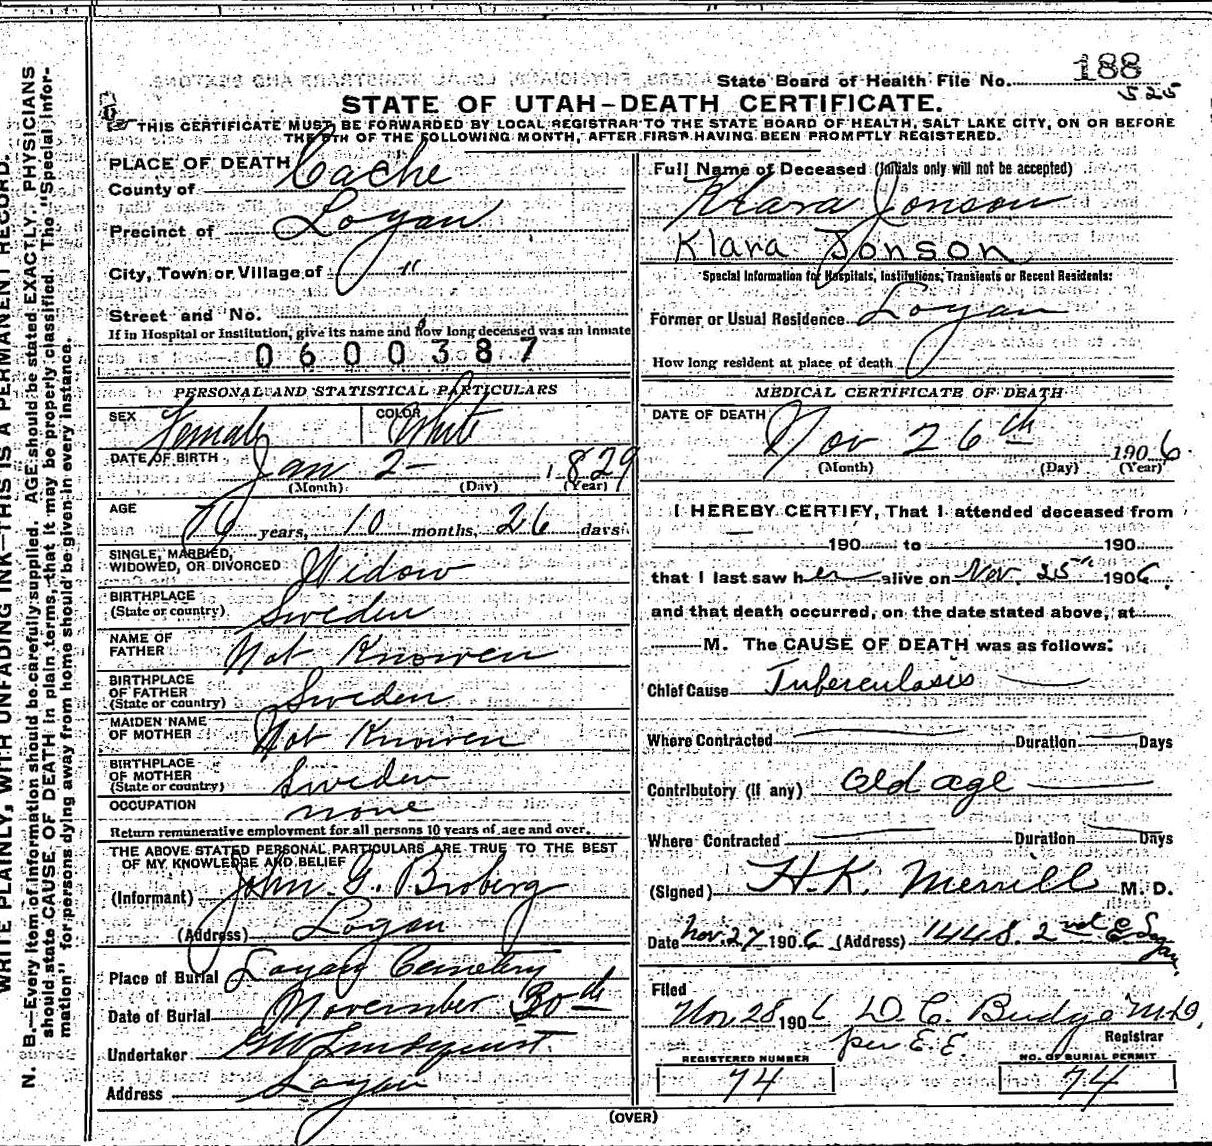 State Board of Health File No. 188
525
STATE OF UTAH-DEATH CERTIFICATE.
THIS CERTIFICATE MUST BE FORWARDED BY LOCAL REGISTRAR TO THE STATE BOARD OF HEALTH, SALT LAKE CITY, ON OR BEFORE
THE 5TH OF THE FOLLOWING MONTH, AFTER FIRST HAVING BEEN PROMPTLY REGISTERED.
PLACE OF DEATH
County of Cache
Precinct of Logan
City, Town or Village of "
Street and No.
If in Hospital or Institution, give its name and how long deceased was an inmate
0600387
PERSONAL AND STATISTICAL PARTICULARS
SEX Female COLOR White
DATE OF BIRTH Jan 2- 1829
(Month) (Day) (Year)
AGE
76 years, 10 months, 26 days
SINGLE, MARRIED,
WIDOWED, OR DIVORCED Widow
BIRTHPLACE
(State or country) Sweden
NAME OF
FATHER Not Knowen
BIRTHPLACE
OF FATHER
(State or country) Sweden
MAIDEN NAME
OF MOTHER Not Knowen
BIRTHPLACE
OF MOTHER
(State or country) Sweden
OCCUPATION none
Return remunerative employment for all persons 10 years of age and over.
THE ABOVE STATED PERSONAL PARTICULARS ARE TRUE TO THE BEST
OF MY KNOWLEDGE AND BELIEF
(Informant) John G. Broberg
(Address) Logan
Place of Burial Logan Cemetery
Date of Burial November 30th
Undertaker GW Lindquist
Address Logan
Full Name of Deceased (Initials only will not be accepted)
Klara Jonson
Klara Jonson
Special Information for Hospitals, Institutions, Transients or Recent Residents:
Former or Usual Residence Logan
How long resident at place of death
MEDICAL CERTIFICATE OF DEATH
DATE OF DEATH
Nov 26th 1906
(Month) (Day) (Year)
I HEREBY CERTIFY, That I attended deceased from
190 to 190
that I last saw her alive on Nov. 25th 1906
and that death occurred, on the date stated above, at
M. The CAUSE OF DEATH was as follows:
Chief Cause Tuberculasis
Where Contracted Duration Days
Contributory (if any) Old age
Where Contracted Duration Days
(Signed) H.K. Merrill M. D.
Date Nov. 27 1906 (Address) 144 S. 2nd E Logan,
Filed
Nov. 28 1906 D. C. Budge M.D.
per E.E. Registrar
REGISTERED NUMBER NO. OF BURIAL PERMIT
74 74
(OVER)
WRITE PLAINLY, WITH UNFADING INK-THIS IS A PERMANENT RECORD.
N. B.—Every item of information should be carefully supplied. AGE should be stated EXACTLY. PHYSICIANS
should state CAUSE OF DEATH in plain terms, that it may be properly classified. The "Special Infor-
mation" for persons dying away from home should be given in every instance.